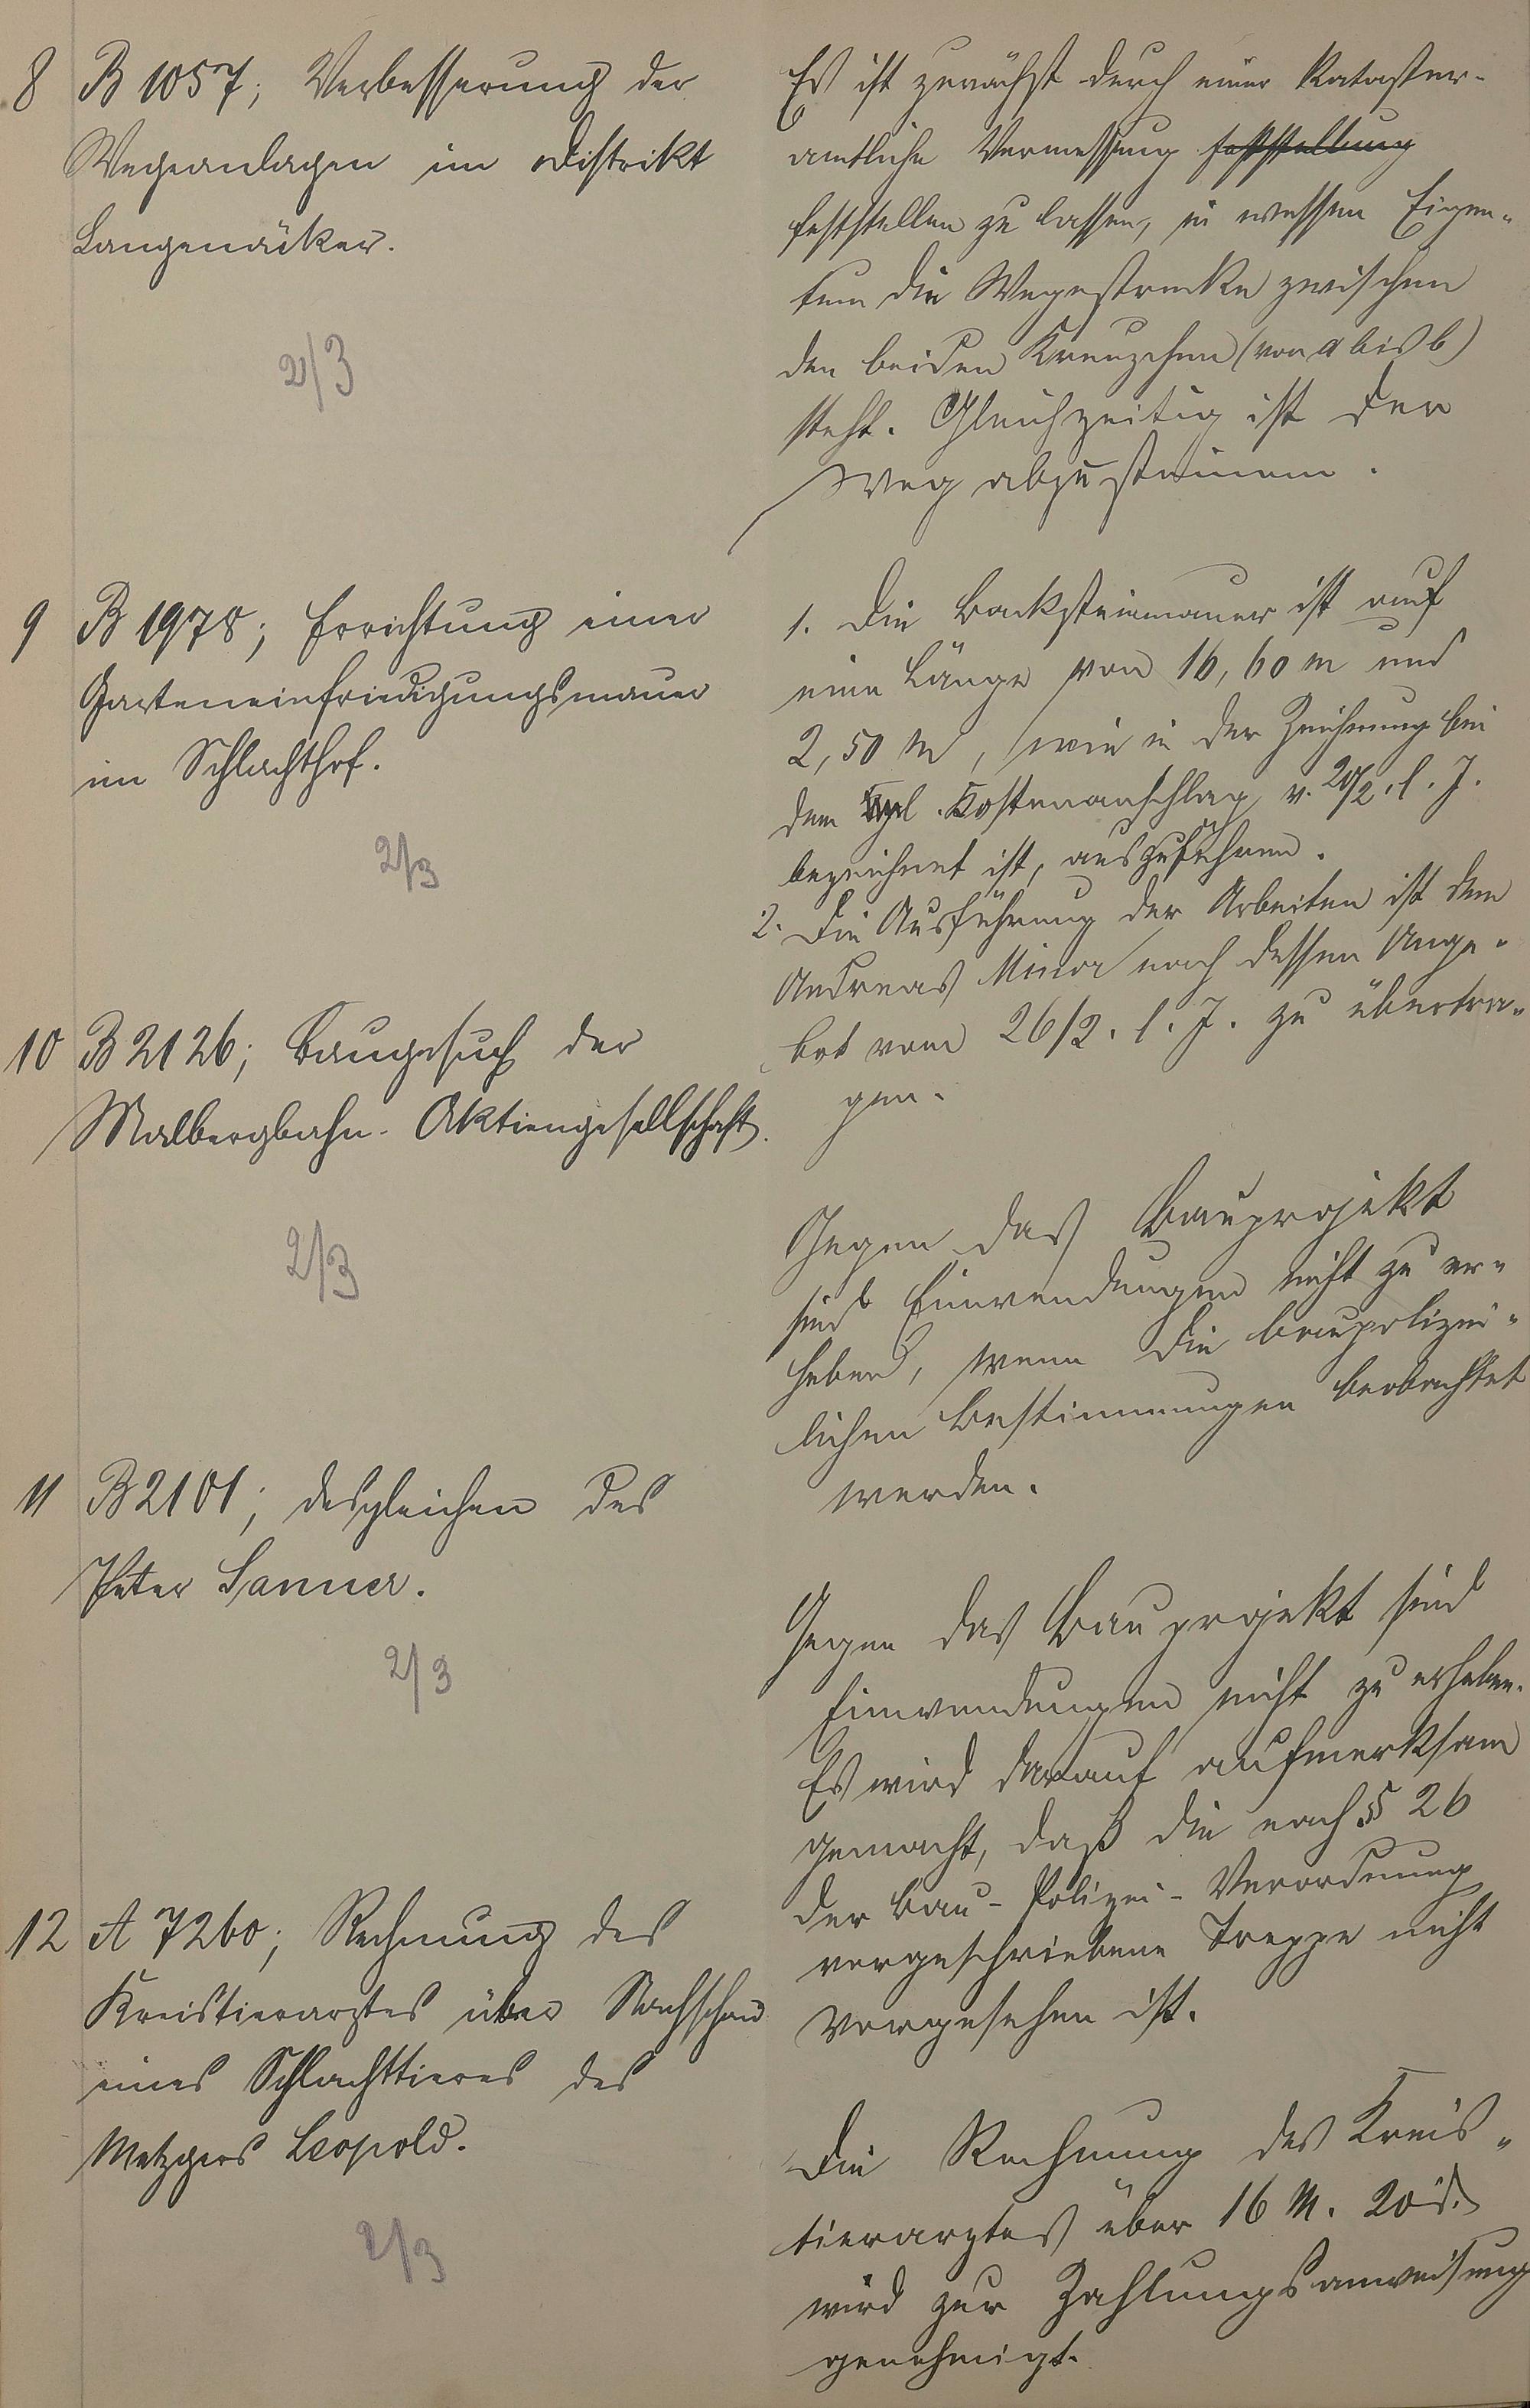 8 B 1057; Verbesserung der
Wegeanlagen im Distrikt
Langenäcker.
2/3
Es ist zunächst durch eine Kataster-
amtliche Vermessung feststellung
feststellen zu lassen, in wessen Eigen-
tum die Wegestrecke zwischen
den beiden Kreuzchen (von a bis b)
steht. Gleichzeitig ist der
Weg abzusteinen.
9 B 1978; Errichtung einer
Garteneinfriedigungsmauer
im Schlachthof.
2/3
1. Die Backsteinmauer ist auf
eine Länge von 16,60 m und
2,50 m, wie in der Zeichnung bei
dem Kostenanschlag v. 20/2. l. J.
bezeichnet ist, auszuführen.
2. Die Ausführung der Arbeiten ist dem
Andreas Minor nach dessen Ange-
bot vom 26/2. l. J. zu übertra-
gen.
10 B 2126; Baugesuch der
Malbergbahn-Aktiengesellschaft.
2/3
Gegen das Bauprojekt
sind Einwendungen nicht zu er-
heben, wenn die baupolizei-
lichen Bestimmungen beobachtet
werden.
11 B 2101; desgleichen des
Peter Sanner.
2/3
Gegen das Bauprojekt sind
Einwendungen nicht zu erheben.
Es wird darauf aufmerksam
gemacht, daß die nach § 26
der Bau-Polizei-Verordnung
vorgeschriebene Treppe nicht
vorgesehen ist.
12 A 7260; Rechnung des
Kreistierarztes über Nachschau
eines Schlachttieres des
Metzgers Leopold.
2/3
Die Rechnung des Kreis-
tierarztes über 16 M. 20 d.
wird zur Zahlungsanweisung
genehmigt.